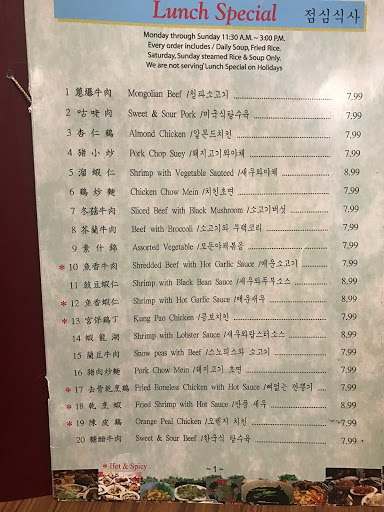 Lunch Special 점심식사
Monday through Sunday 11:30 A.M. ~ 3:00 P.M.
Every order includes / Daily Soup, Fried Rice.
Saturday, Sunday steamed Rice & Soup Only.
We are not serving Lunch Special on Holidays
1 蔥爆牛肉 Mongolian Beef /청파소고기 7.99
2 咕咾肉 Sweet & Sour Pork /미국식탕수육 7.99
3 杏仁鷄 Almond Chicken /알몬드치킨 7.99
4 豬小炒 Pork Chop Suey /돼지고기와야채 7.99
5 溜蝦仁 Shrimp with Vegetable Sauteed /새우와야채 8.99
6 鷄炒麵 Chicken Chow Mein /치킨초면 7.99
7 冬菇牛肉 Sliced Beef with Black Mushroom /소고기버섯 7.99
8 芥蘭牛肉 Beef with Broccoli /소고기와 부랙코리 7.99
9 素什錦 Assorted Vegetable /모든야채볶음 7.99
* 10 魚香牛肉 Shredded Beef with Hot Garlic Sauce /매운소고기 7.99
11 豉豆蝦仁 Shrimp with Black Bean Sauce /새우와두부소스 8.99
* 12 魚香蝦仁 Shrimp with Hot Garlic Sauce /매운새우 8.99
* 13 宮保鷄丁 Kung Pao Chicken /콩보치킨 7.99
14 蝦龍湖 Shrimp with Lobster Sauce /새우와랍스타소스 8.99
15 蘭豆牛肉 Snow peas with Beef /스노피스와 소고기 7.99
16 豬肉炒麵 Pork Chow Mein /돼지고기 초면 7.99
* 17 去骨乾烹鷄 Fried Boneless Chicken with Hot Sauce /뼈없는 깐뿡기 7.99
* 18 乾烹蝦 Fried Shrimp with Hot Sauce /깐풍 새우 8.99
* 19 陳皮鷄 Orange Peal Chicken /오렌지 치킨 7.99
20 糖醋牛肉 Sweet & Sour Beef /한국식 탕수육 7.99
* Hot & Spicy
~ 1 ~